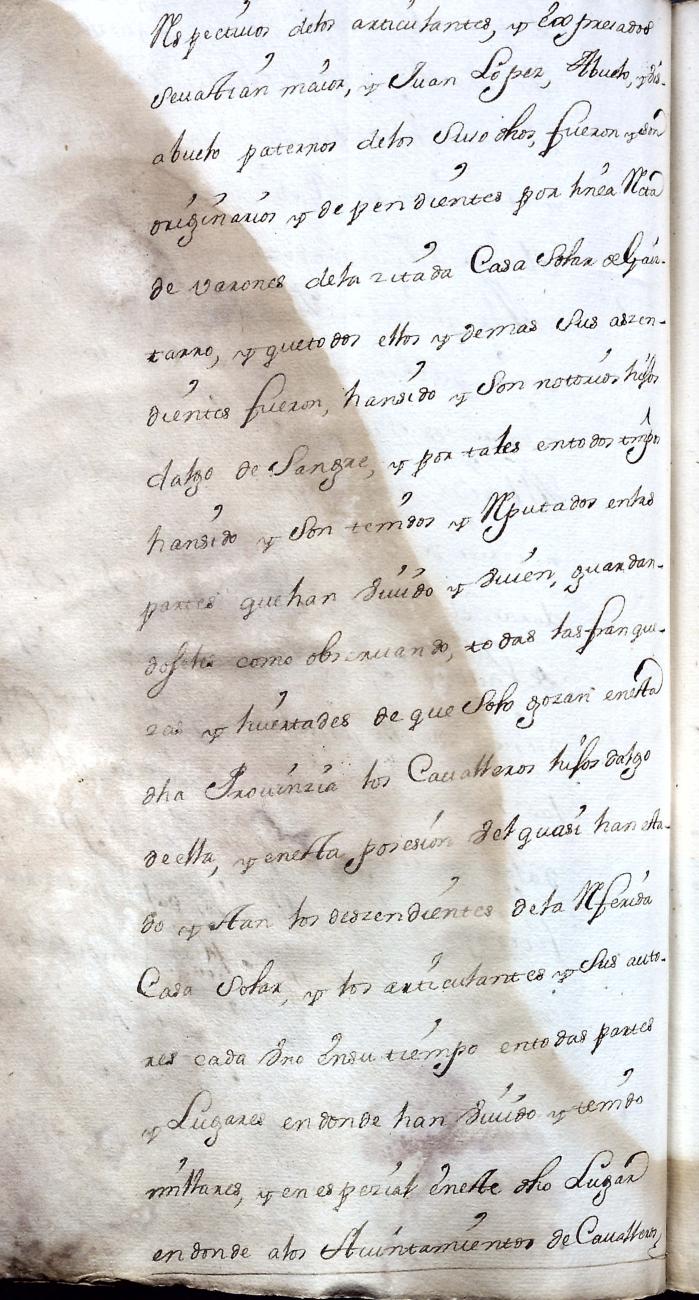 Respectivos delos articulantes, y Expresados
Sevastian maior, y Juan Lopez, Abuelo, y Bis-
abuelo paternos delos Suso dhos, fueron y son
originarios y dependientes por linea Recta
de varones dela zitada Casa Solar de
tarro, y quetodos ellos y demas Sus aszen-
dientes fueron, hansido y Son notorios hijos
dalgo de Sangre, y por tales entodos tmpo
hansido y Son tenidos y Reputados enlas
partes quehan Viuido y Viuen, guardan-
doseles como obseruando, todas las franque-
zas y liuertades de que Solo gozan enesta
dha Prouinzia los Caualleros hijos dalgo
de ella, y enesta posesion Vel quasi han esta-
do y estan los deszendientes dela Referida
Casa Solar, y los articulantes y Sus auto-
res cada Vno ensu tiempo entodas partes
y Lugares endonde han Viuido y tenido
millares, y en espezial eneste dho Lugar
endonde alos Aiuntamientos de Caualleros